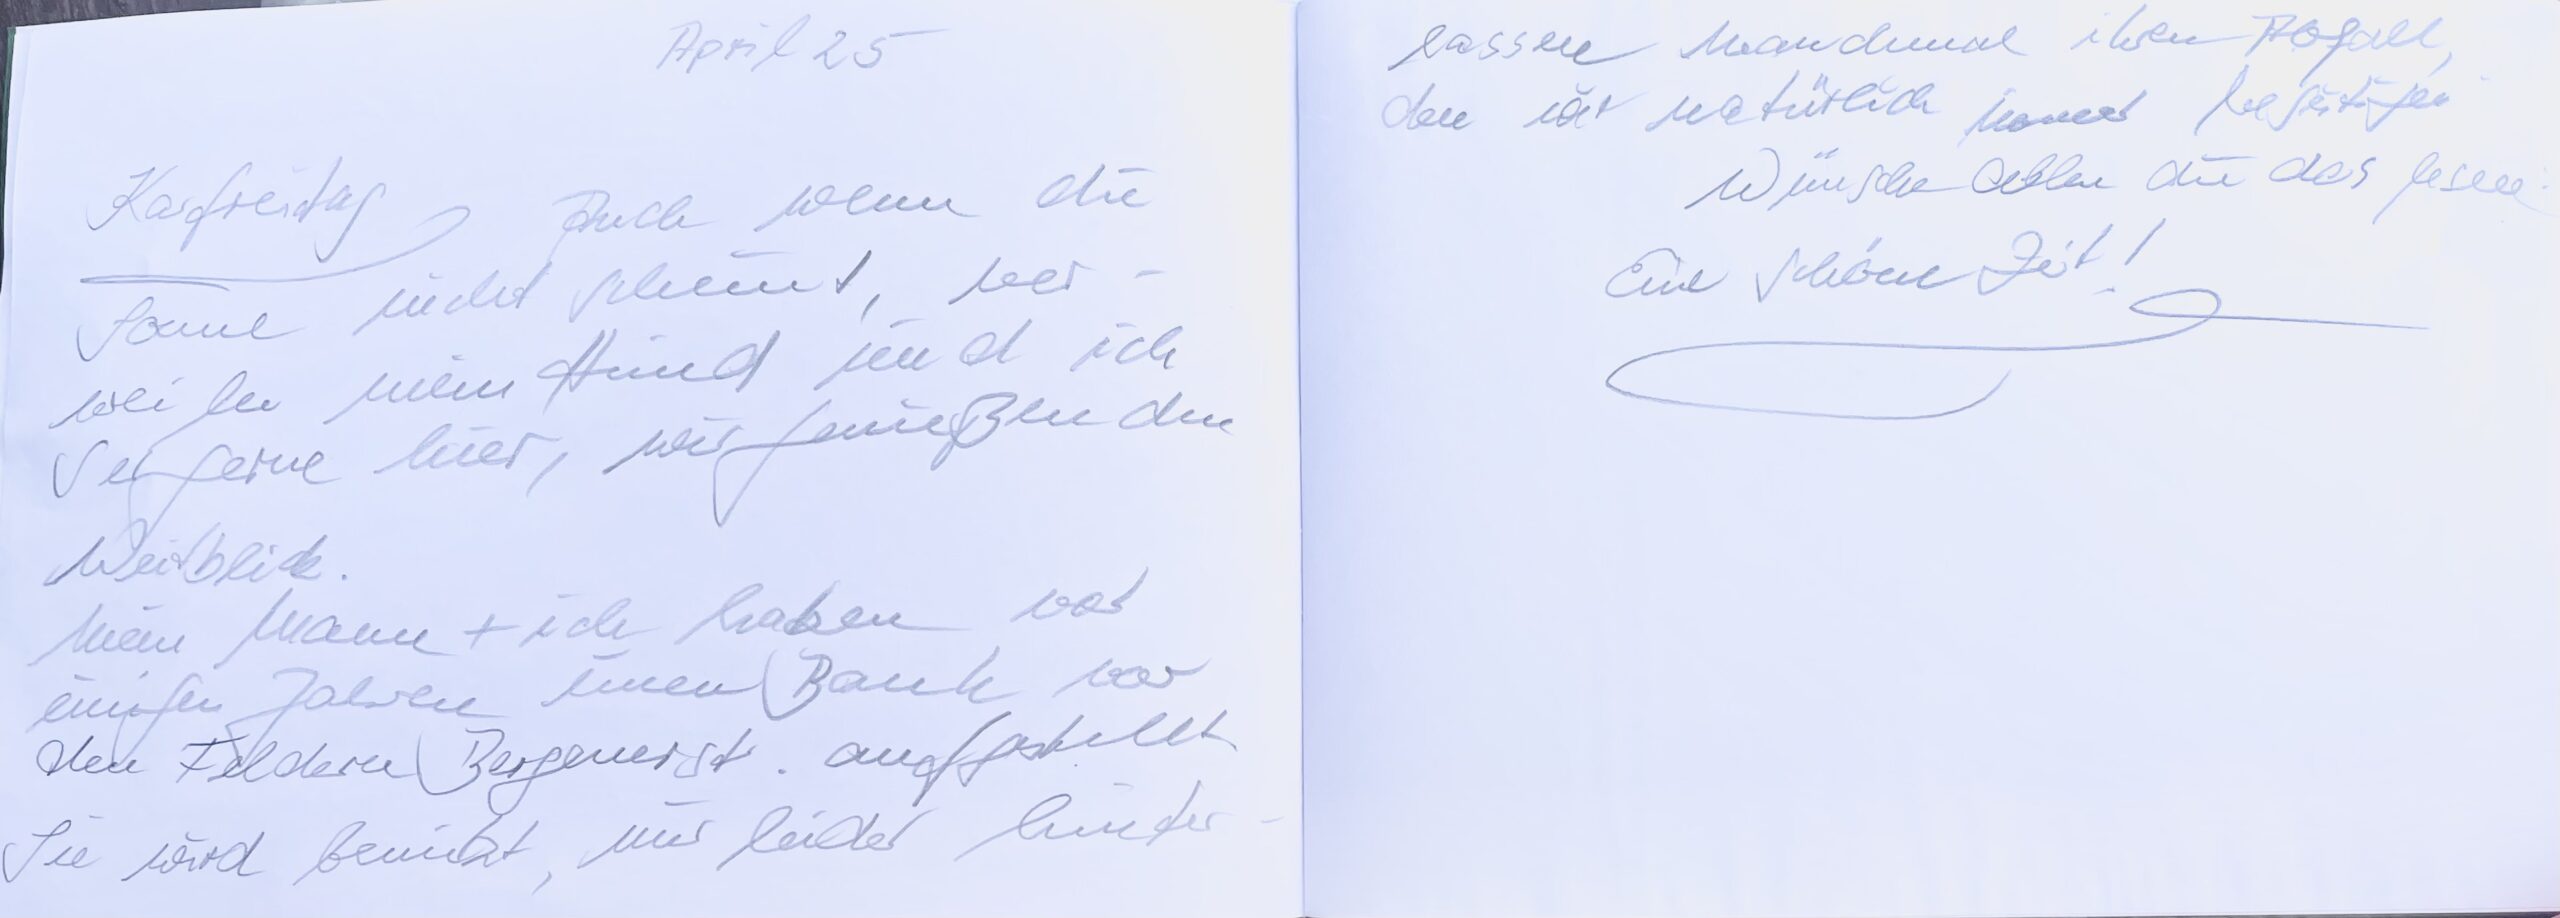 April 25
Karfreitag Auch wenn die
Sonne nicht scheint, ver-
weilen mein Hund und ich
sehr gerne hier, wir genießen den
Weitblick.
Mein Mann + ich haben vor
einigen Jahren einen Bank vor
den Feldern aufgestellt
Sie wird benützt, nur leider hinter-
lassen manchmal ihren Abfall,
den wir natürlich immer beseitigen
Wünsche Allen die das lesen:
Eine schöne Zeit!